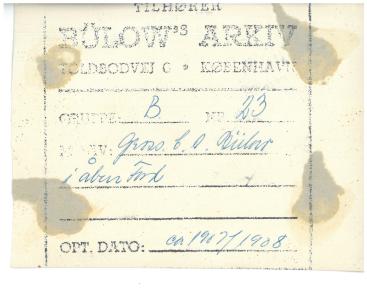 TILHØRER
BÜLOW'S ARKIV
TOLDBODVEJ 6 • KØBENHAVN
GRUPPE: B NR. 23
MOTIV: Gros. C. O. Bülow
i åben Ford
OPT. DATO: ca 1907/1908